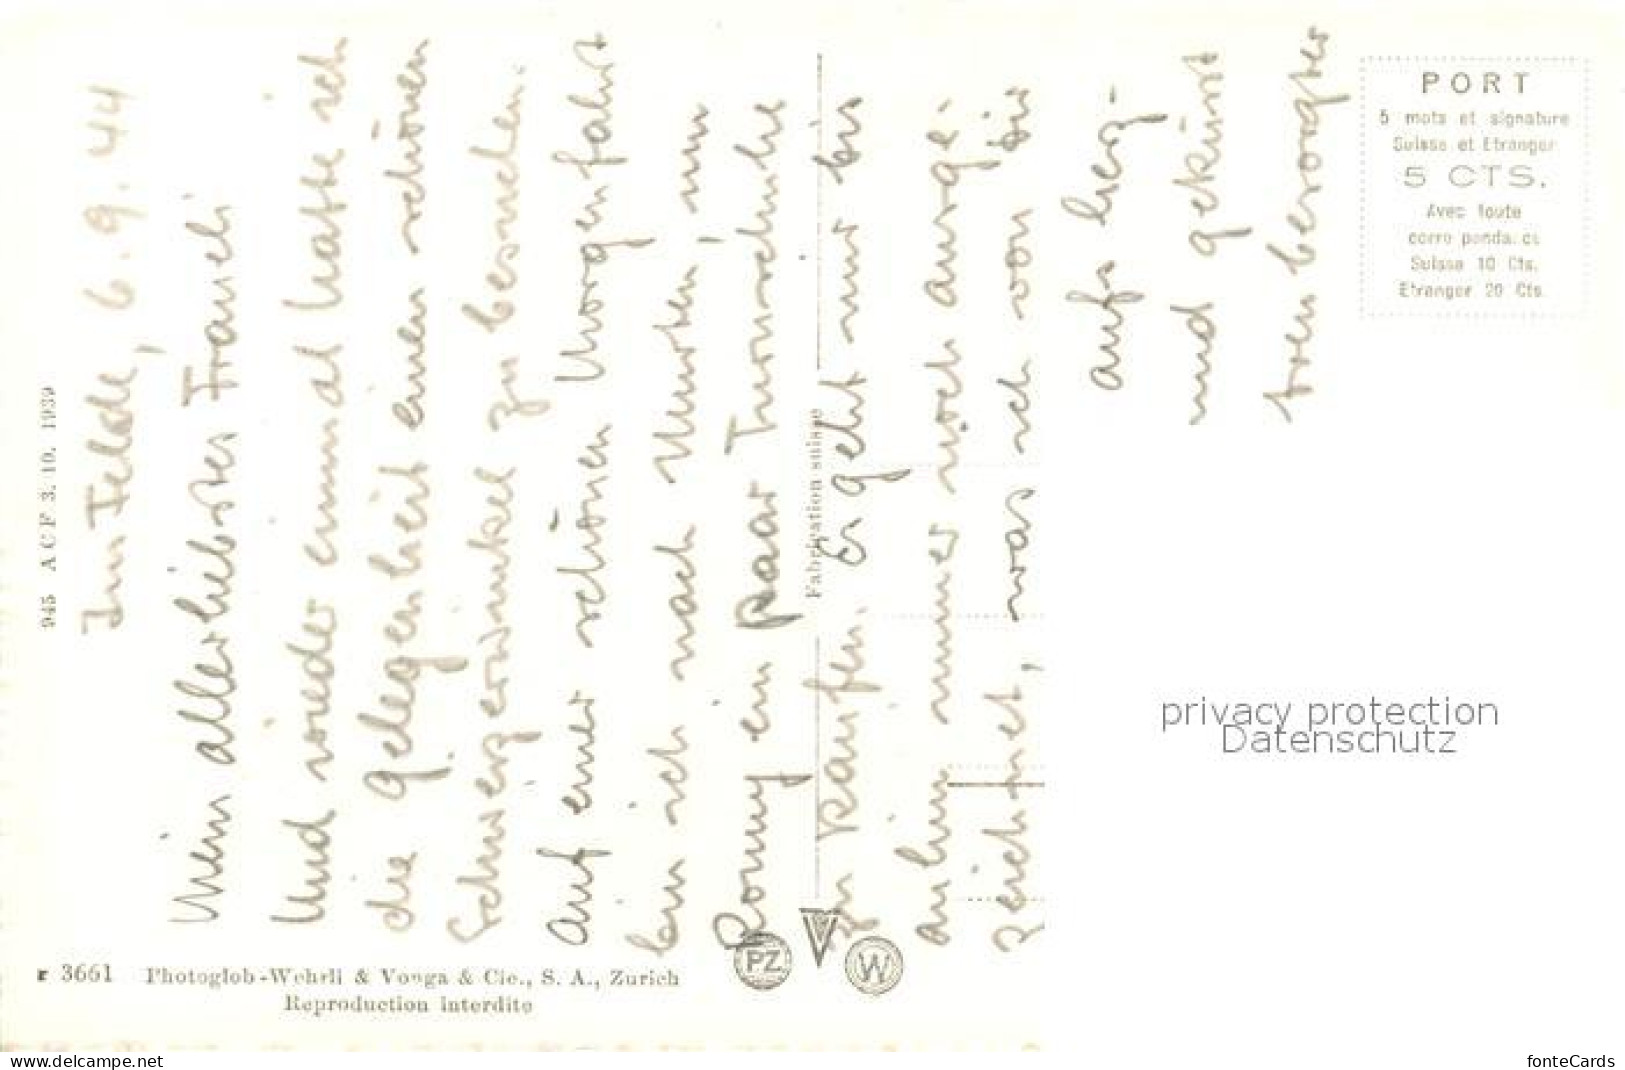 Im Felde, 6.9.44
Mein allerliebstes Fraueli
Und wieder einmal hatte ich
die Gelegenheit einen schönen
Schweizerwinkel zu besuchen.
Auf einer schönen Morgenfahrt
bin ich nach Murten, um
Romy ein paar Turnschuhe
zu kaufen. Er geht nur bis
anhin immer noch ausge-
zeichnet, was ich von Dir
aufs herz-
und geküsst
Dein besorgter
945 A C F 3. 10. 1939
Fabrication suisse
PORT
5 mots et signature
Suisse et Etranger
5 CTS.
Avec toute
corre pondance
Suisse 10 Cts.
Etranger 20 Cts.
privacy protection
Datenschutz
3661 Photoglob-Wehrli & Vouga & Cie., S. A., Zurich
Reproduction interdite
PZ
V
W
www.delcampe.net
fonteCards